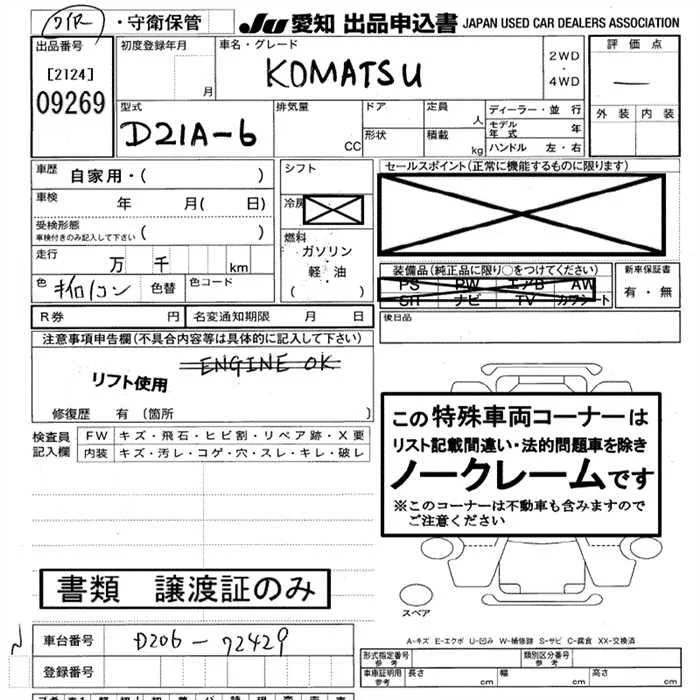 DIR ・守衛保管
JU 愛知 出品申込書 JAPAN USED CAR DEALERS ASSOCIATION
出品番号 [2124] 09269
初度登録年月 月
車名・グレード KOMATSU
2WD ・ 4WD
評価点 —
外装 内装
型式 D21A-6
排気量 CC
ドア 形状
定員 人 積載 kg
ディーラー・並行
モデル年式 年
ハンドル 左・右
車歴 自家用・( )
車検 年 月( 日)
受検形態 車検付きのみ記入して下さい ( )
走行 万 千 km
色 色替 色コード
シフト
冷房
燃料 ガソリン・軽・油 ( )
セールスポイント(正常に機能するものに限ります)
装備品(純正品に限り○をつけてください)
PS PW エアB AW
SR ナビ TV カワシート
新車保証書 有・無
R券 円 名変通知期限 月 日
後日品
注意事項申告欄(不具合内容等は具体的に記入して下さい)
ENGINE OK
リフト使用
修復歴 有(箇所 )
検査員記入欄
FW キズ・飛石・ヒビ割・リペア跡・X要
内装 キズ・汚レ・コゲ・穴・スレ・キレ・破レ
この特殊車両コーナーは
リスト記載間違い・法的問題車を除き
ノークレームです
※このコーナーは不動車も含みますので
ご注意ください
書類 譲渡証のみ
スペア
A-キズ E-エクボ U-凹み W-補修跡 S-サビ C-腐食 XX-交換済
車台番号 D206-72429
登録番号
形式指定番号 参考 類別区分番号 参考
車庫証明用 参考 長さ cm 幅 cm 高さ cm